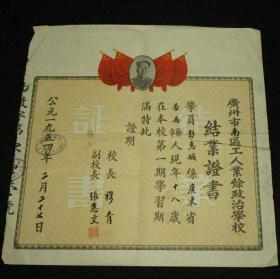 廣州市南區工人業餘政治學校
結業證書
學員彭惠娴 係廣東省
番禺縣人現年十八歲
在本校第一期學習期
滿特此
證明
校長 穆青
副校長 張惠文
公元一九五四年二月二十七日